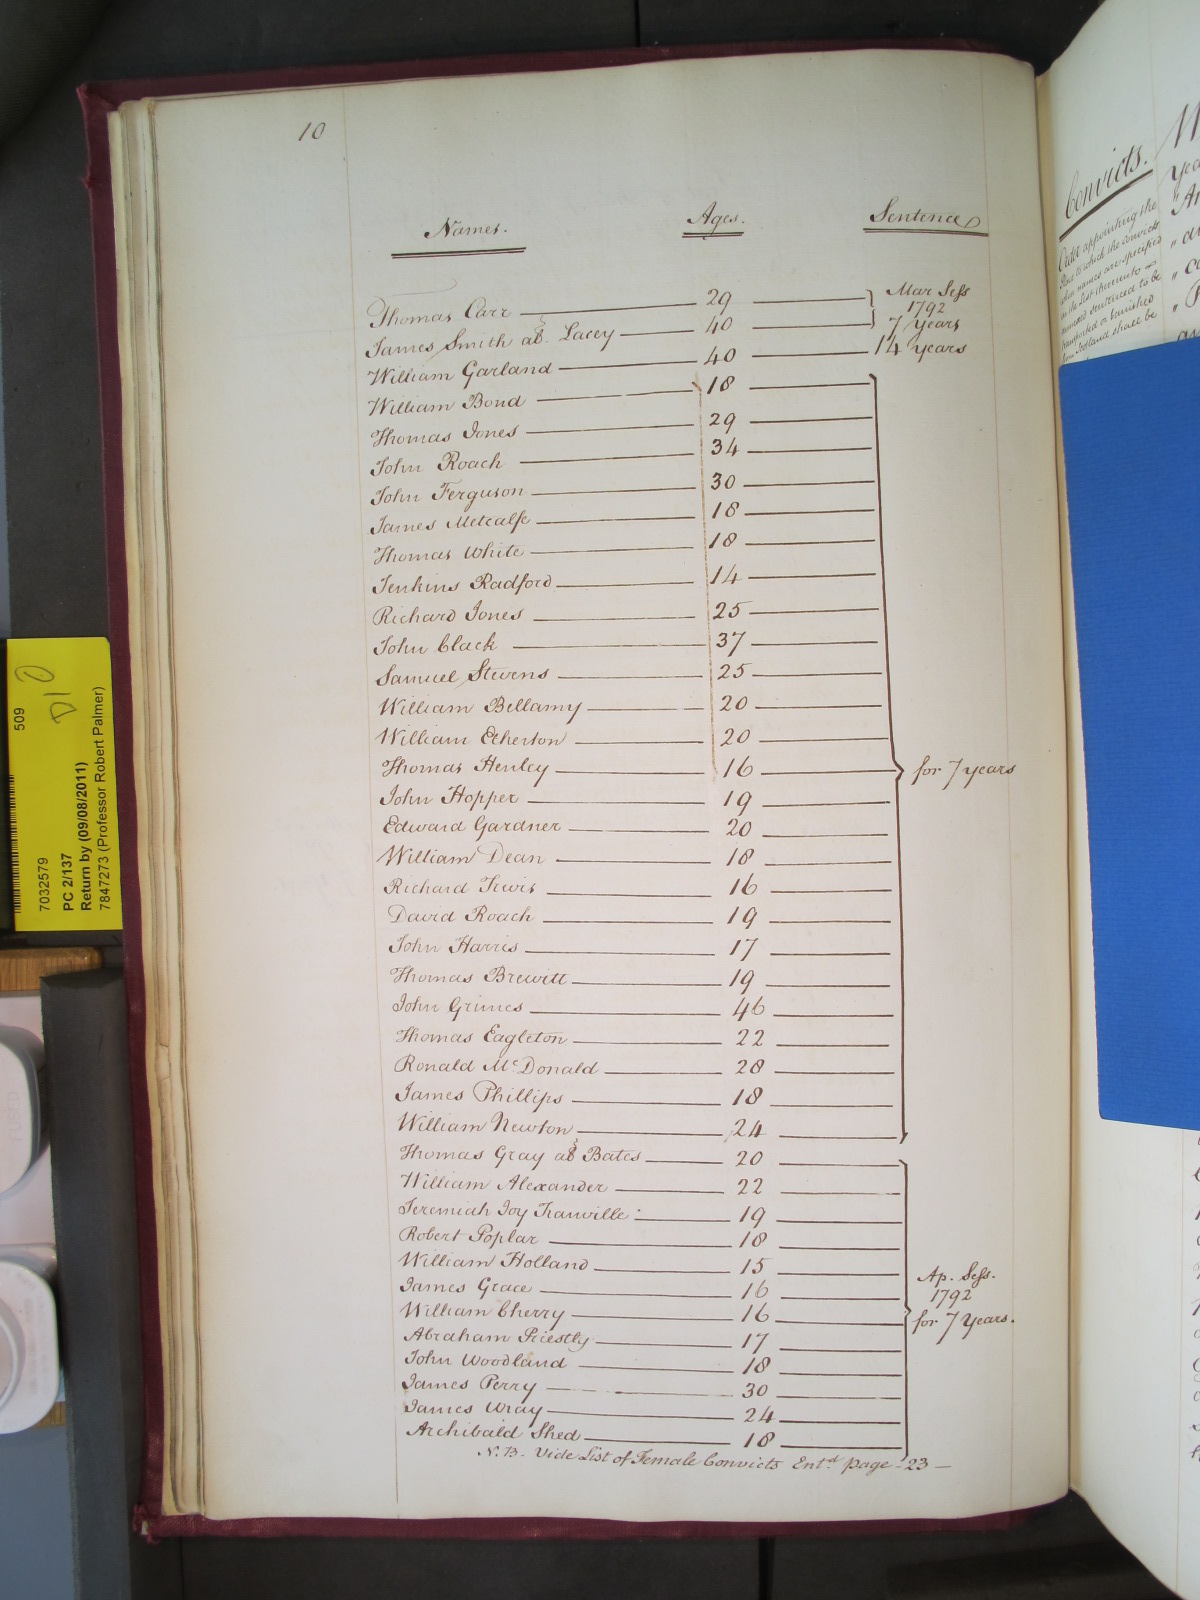 10
Names. Ages. Sentence
Thomas Carr 29 Mar Sess 1792
James Smith als. Lacey 40 7 years
William Garland 40 14 years
William Bond 18
Thomas Jones 29
John Roach 34
John Ferguson 30
James Metcalfe 18
Thomas White 18
Jenkins Radford 14
Richard Jones 25
John Clack 37
Samuel Stevens 25
William Bellamy 20
William Etherton 20
Thomas Henley 16 for 7 years
John Hopper 19
Edward Gardner 20
William Dean 18
Richard 16
David Roach 19
John Harris 17
Thomas Brewitt 19
John Grimes 46
Thomas Eagleton 22
Ronald McDonald 28
James Phillips 18
William Newton 24
Thomas Gray als Bates 20
William Alexander 22
Jeremiah Joy Tranville 19
Robert Poplar 18
William Holland 15
James Grace 16 Ap. Sess. 1792
William Cherry 16 for 7 Years.
Abraham Priestly 17
John Woodland 18
James Perry 30
James Wray 24
Archibald Shed 18
N.B. Vide List of Female Convicts Entd. page 23
Convicts.
Order appointing the
Place to which the Convicts
whose names are specified
in the List thereunto
annexed sentenced to be
transported or banished
from Scotland shall be
509
D10
7032579
PC 2/137
Return by (09/08/2011)
7847273 (Professor Robert Palmer)